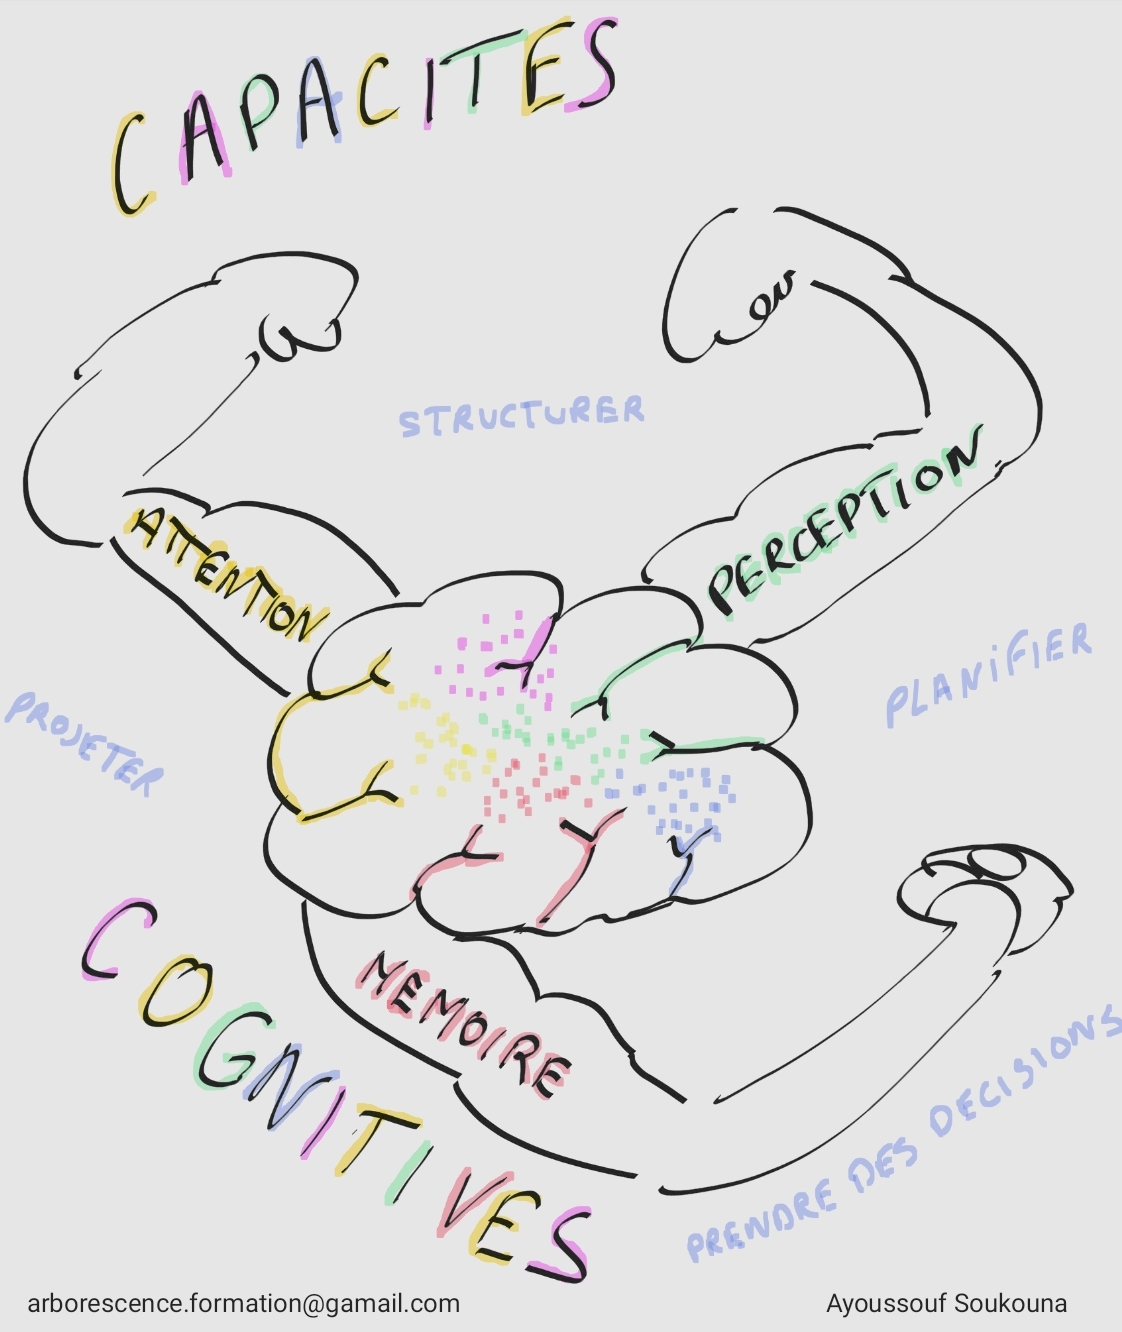 CAPACITES
STRUCTURER
PERCEPTION
ATTENTION
PLANiFIER
PROJETER
COGNITIVES
MEMOIRE
PRENDRE DES DECISIONS
arborescence.formation@gamail.com
Ayoussouf Soukouna